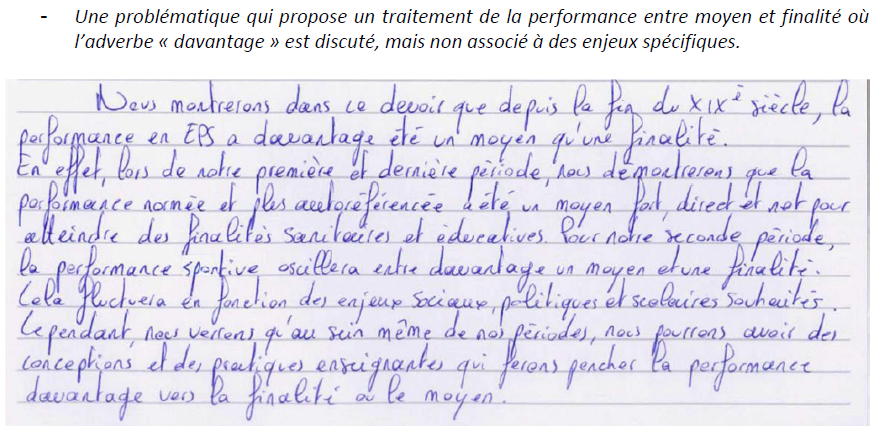 - Une problématique qui propose un traitement de la performance entre moyen et finalité où
l'adverbe « davantage » est discuté, mais non associé à des enjeux spécifiques.
Nous montrerons dans ce devoir que depuis la fin du XIXè siècle, la
performance en EPS a davantage été un moyen qu'une finalité.
En effet, lors de notre première et dernière période, nous démontrerons que la
performance normée et plus autoréférencée a été un moyen fort, direct et net pour
atteindre des finalités sanitaires et éducatives. Pour notre seconde période,
la performance sportive oscillera entre davantage un moyen et une finalité.
Cela fluctuera en fonction des enjeux sociaux, politiques et scolaires souhaités.
Cependant, nous verrons qu'au sein même de nos périodes, nous pourrons avoir des
conceptions et des pratiques enseignantes qui ferons pencher la performance
davantage vers la finalité ou le moyen.